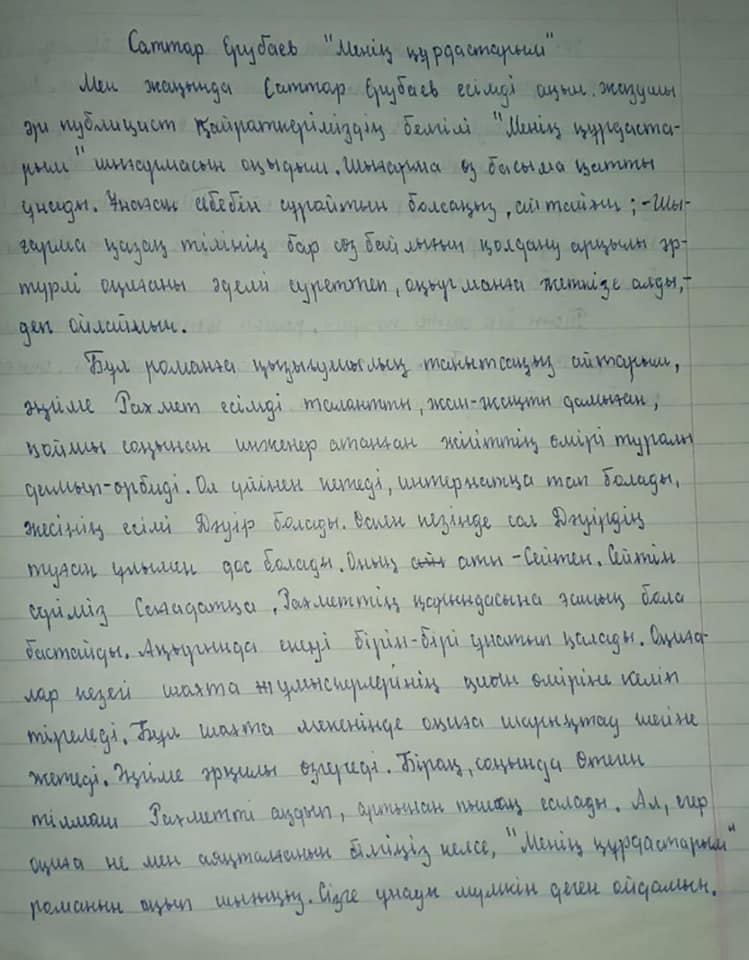 Саттар Ерубаев "Менің құрдастарым"
Мен жақында Саттар Ерубаев есімді ақын. жазушы
әрі публицист қайраткеріміздің белгілі "Менің құрдаста-
рым" шығармасын оқыдым. Шығарма өз басыма қатты
ұнады. Ұнаған себебін сұрайтын болсаңыз, айтайын; -Шы-
ғарма қазақ тілінің бар сөз байлығын қолдану арқылы әр-
түрлі оқиғаны әдемі суреттеп, оқырманға жеткізе алды,-
деп ойлаймын.
Бұл романға қызығушылық танытсаңыз айтарым,
әңгіме Рахмет есімді талантты, жан-жақты дамыған,
қоймы соңынан инженер атанған жігіттің өмірі туралы
дамып-өрбиді. Ол үйінен кетеді, интернатқа тап болады,
жесінің есімі Дәуір болады. Өскен кезінде сол Дәуірдің
туған ұлымен дос болады. Оның аты - Сейтен. Сейтін
серіміз Сағадатқа, Рахметтің қарындасына ғашық бола
бастайды. Ақырында екеуі бірін-бірі ұнатып қалады. Оқиға-
лар кезегі шахта жұмыскерлерінің қиын өміріне келіп
тіреледі. Бұл шахта мекенінде оқиға шарықтау шегіне
жетеді. Әңгіме әрқилы өзгереді. Бірақ, соңында Өтеген
тілмаш Рахметті аздып, артынан пышақ салады. Ал, егер
оқиға не мен аяқталғанын білгіңіз келсе, "Менің құрдастарым"
романын оқып шығыңыз. Сізге ұнауы мүмкін деген ойдамын.